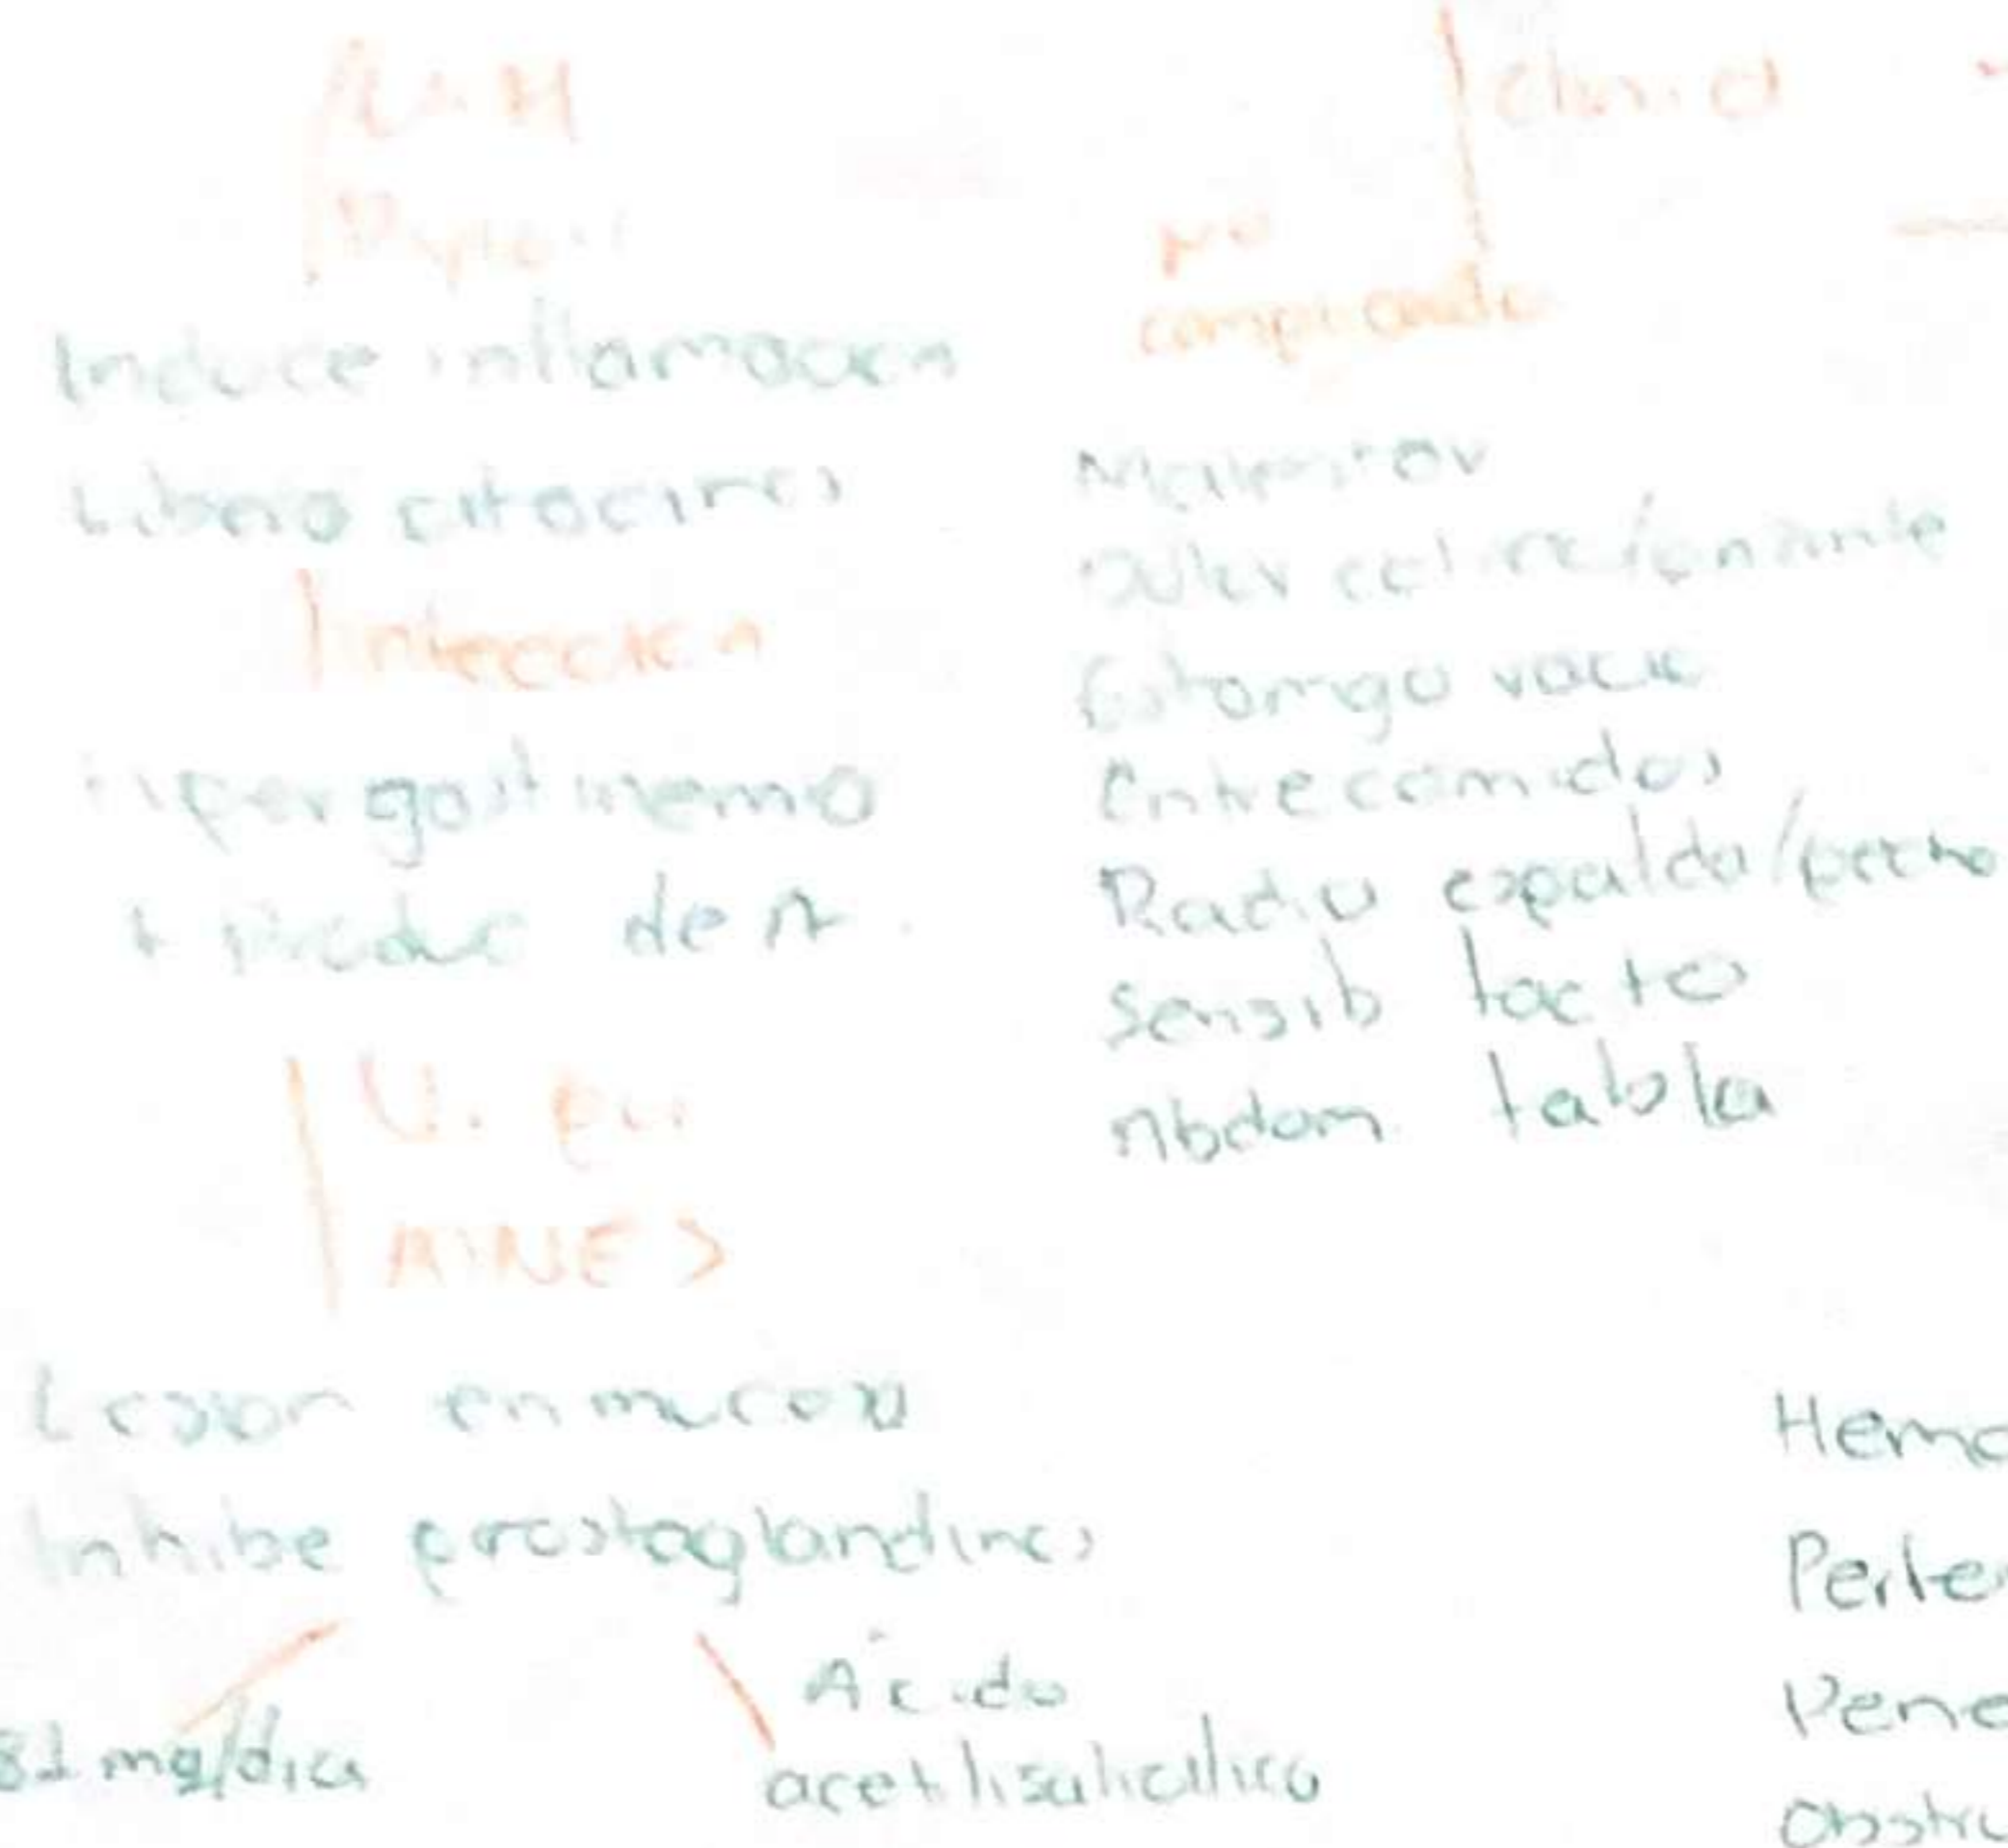 Induce inflamación
Libera citocinas
Infección
Hipergastrinemia
+ Produc de A.
U. por
AINES
Lesion en mucosa
Inhibe prostaglandinas
81 mg/dia
Acido
acetilsalicilico
No
complicada
Malestar
Estomgo vacio
Entre comidas
Radia espalda/pecho
Sensib tacto
Abdom. tabla
Hemo
Pene
Obstru